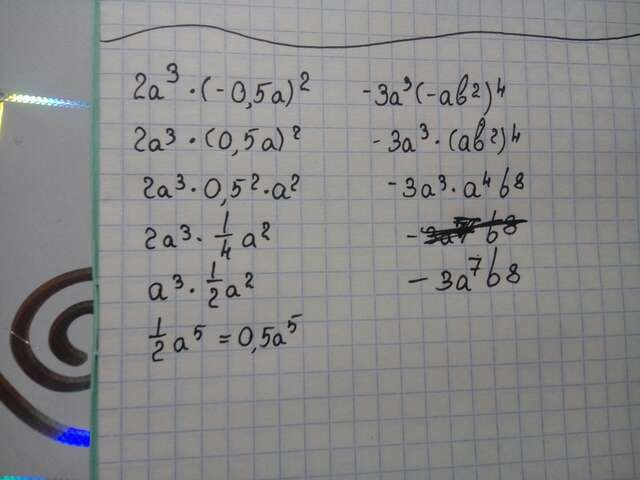 2a³ · (-0,5a)²
2a³ · (0,5a)²
2a³ · 0,5² · a²
2a³ · 1/4 a²
a³ · 1/2 a²
1/2 a⁵ = 0,5a⁵
-3a³(-ab²)⁴
-3a³ · (ab²)⁴
-3a³ · a⁴b⁸
-3a⁷b⁸